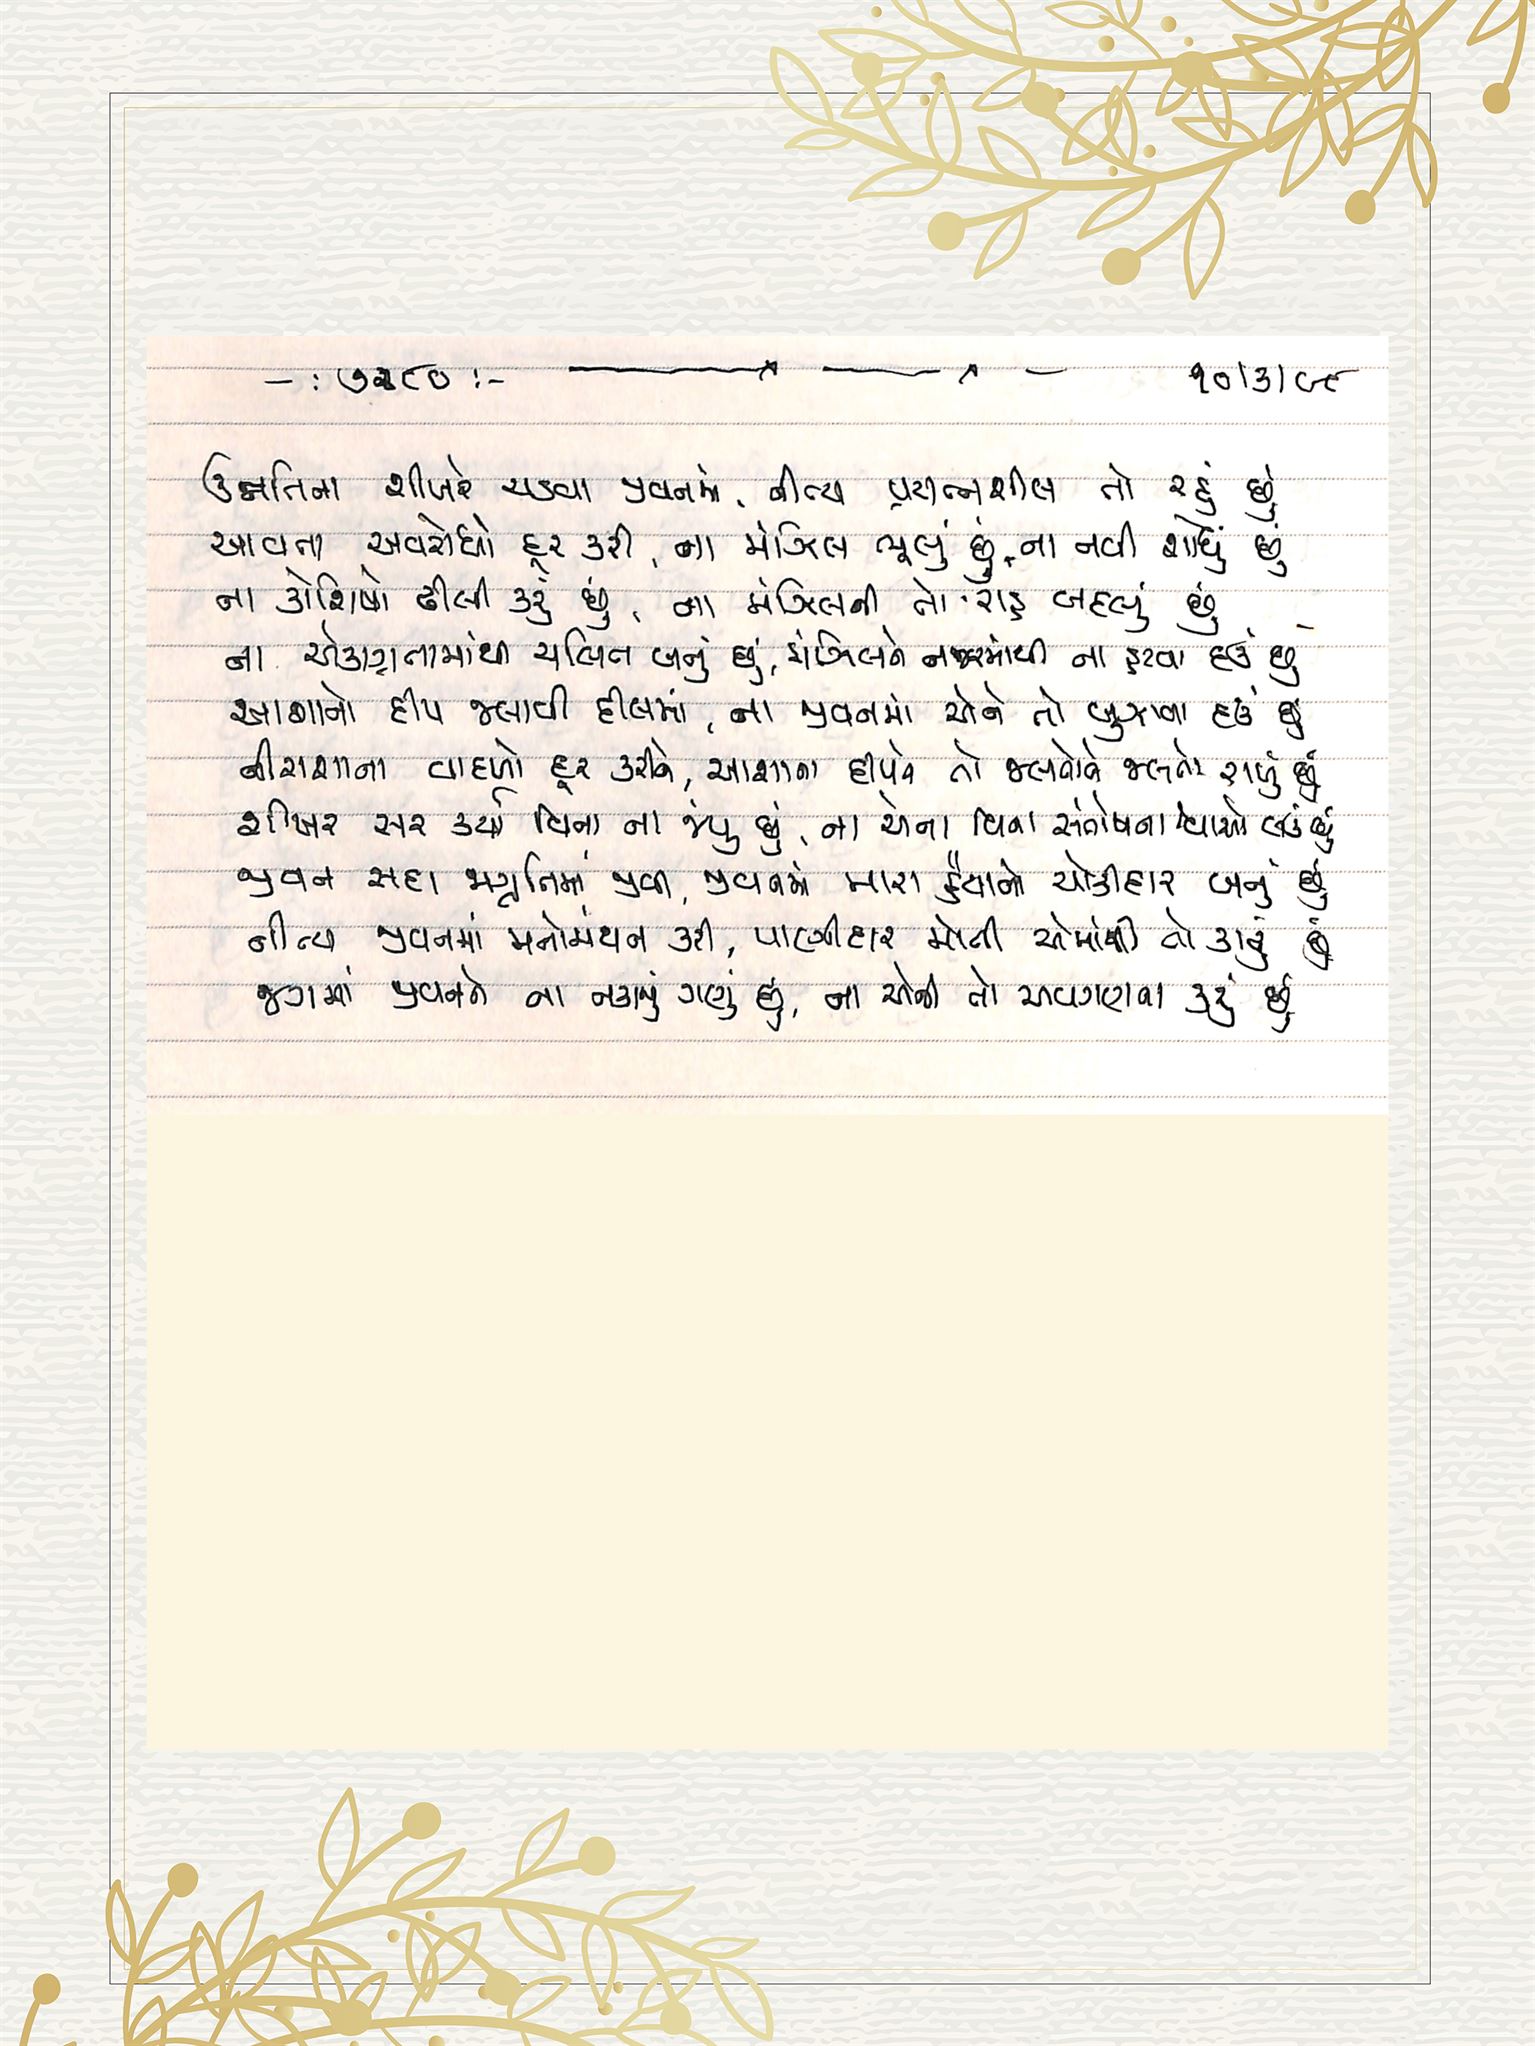 -: ૭૨૮૦ :- ૧૦/૩/૯૮
ઉન્નતિના શીખરે ચડવા જીવનમાં, નીત્ય પ્રયત્નશીલ તો રહું છું
આવતા અવરોધો દૂર કરી, ના મંઝિલ ભૂલું છું, ના નવી શોધું છું
ના કોશિષો ઢીલી કરું છું, ના મંઝિલની તો રાહ બદલું છું
ના એકાગ્રતામાંથી ચલિત બનું છું, મંઝિલને નજરમાંથી ના હટવા દઉં છું
આશાનો દીપ જલાવી દીલમાં, ના જીવનમાં એને તો બુઝાવા દઉં છું
નીરાશાના વાદળો દૂર કરીને, આશાના દીપને તો જલતોને જલતો રાખું છું
શીખર સર કર્યા વિના ના જંપુ છું, ના એના વિના સંતોષના શ્વાસો લઉં છું
જીવન સદા જાગૃતિમાં જીવી, જીવનમાં મારા હૈયાનો ચોકીદાર બનું છું
નીત્ય જીવનમાં મનોમંથન કરી, પાણીદાર મોતી એમાંથી તો કાઢું છું
જગમાં જીવનને ના નકામું ગણું છું, ના એની તો અવગણના કરું છું